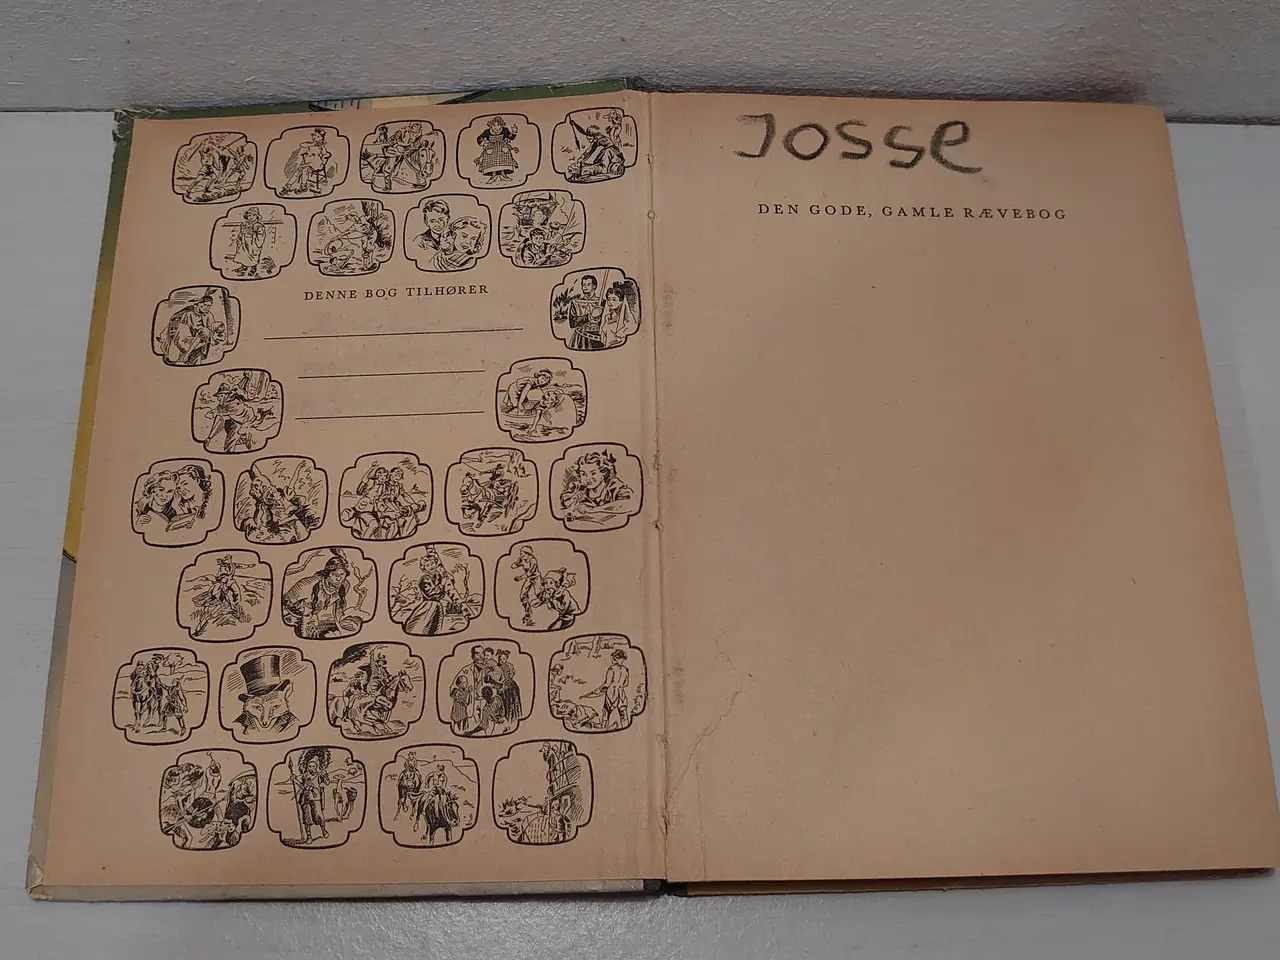 DENNE BOG TILHØRER
Josse
DEN GODE, GAMLE RÆVEBOG